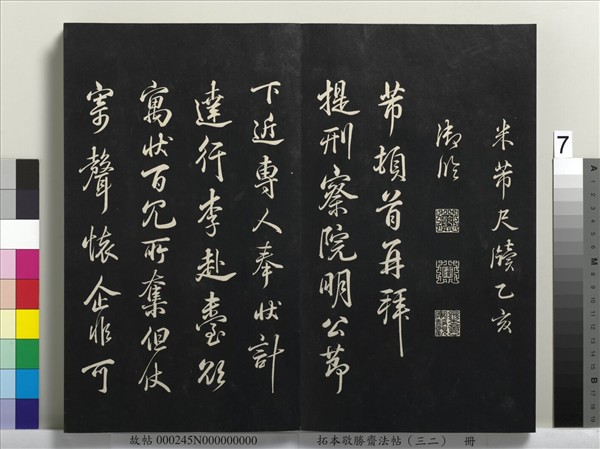 米芾尺牘乙亥
御臨
芾頓首再拜
提刑察院明公節
下近專人奉狀計
達行李赴臺欲
寓狀百冗所奪但仗
寄聲懷企非可
7
故帖 000245N000000000 拓本敬勝齋法帖(三二) 冊